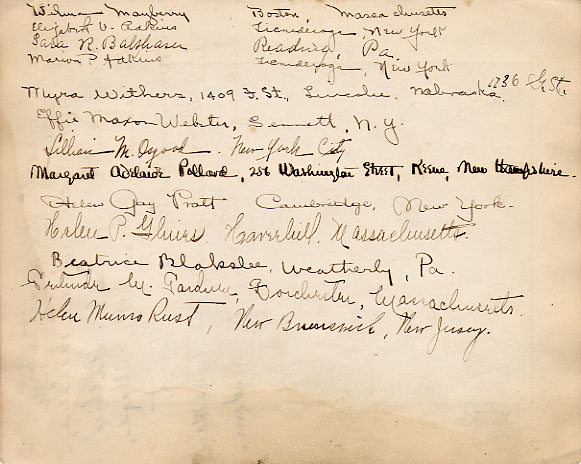 Wilma Mayberry Boston, Massachusetts
Elizabeth V. Adkins Ticonderoga, New York
Sara R. Balshaun Reading, Pa.
Marion P. Adkins Ticonderoga, New York
Myra Withers, 1409 F. St., Lincoln, Nebraska. 1736 G St.
Effie Maxon Webster, Sennett, N.Y.
Lillian M. Osgood. New York City
Margaret Adelaide Pollard, 256 Washington Street, Keene, New Hampshire.
Helen Gay Pratt Cambridge, New York.
Helen P. Haverhill, Massachusetts.
Beatrice Blakslee, Weatherly, Pa.
Gertrude M. Gardner, Dorchester, Massachusetts.
Helen Munro Rust, New Brunswick, New Jersey.